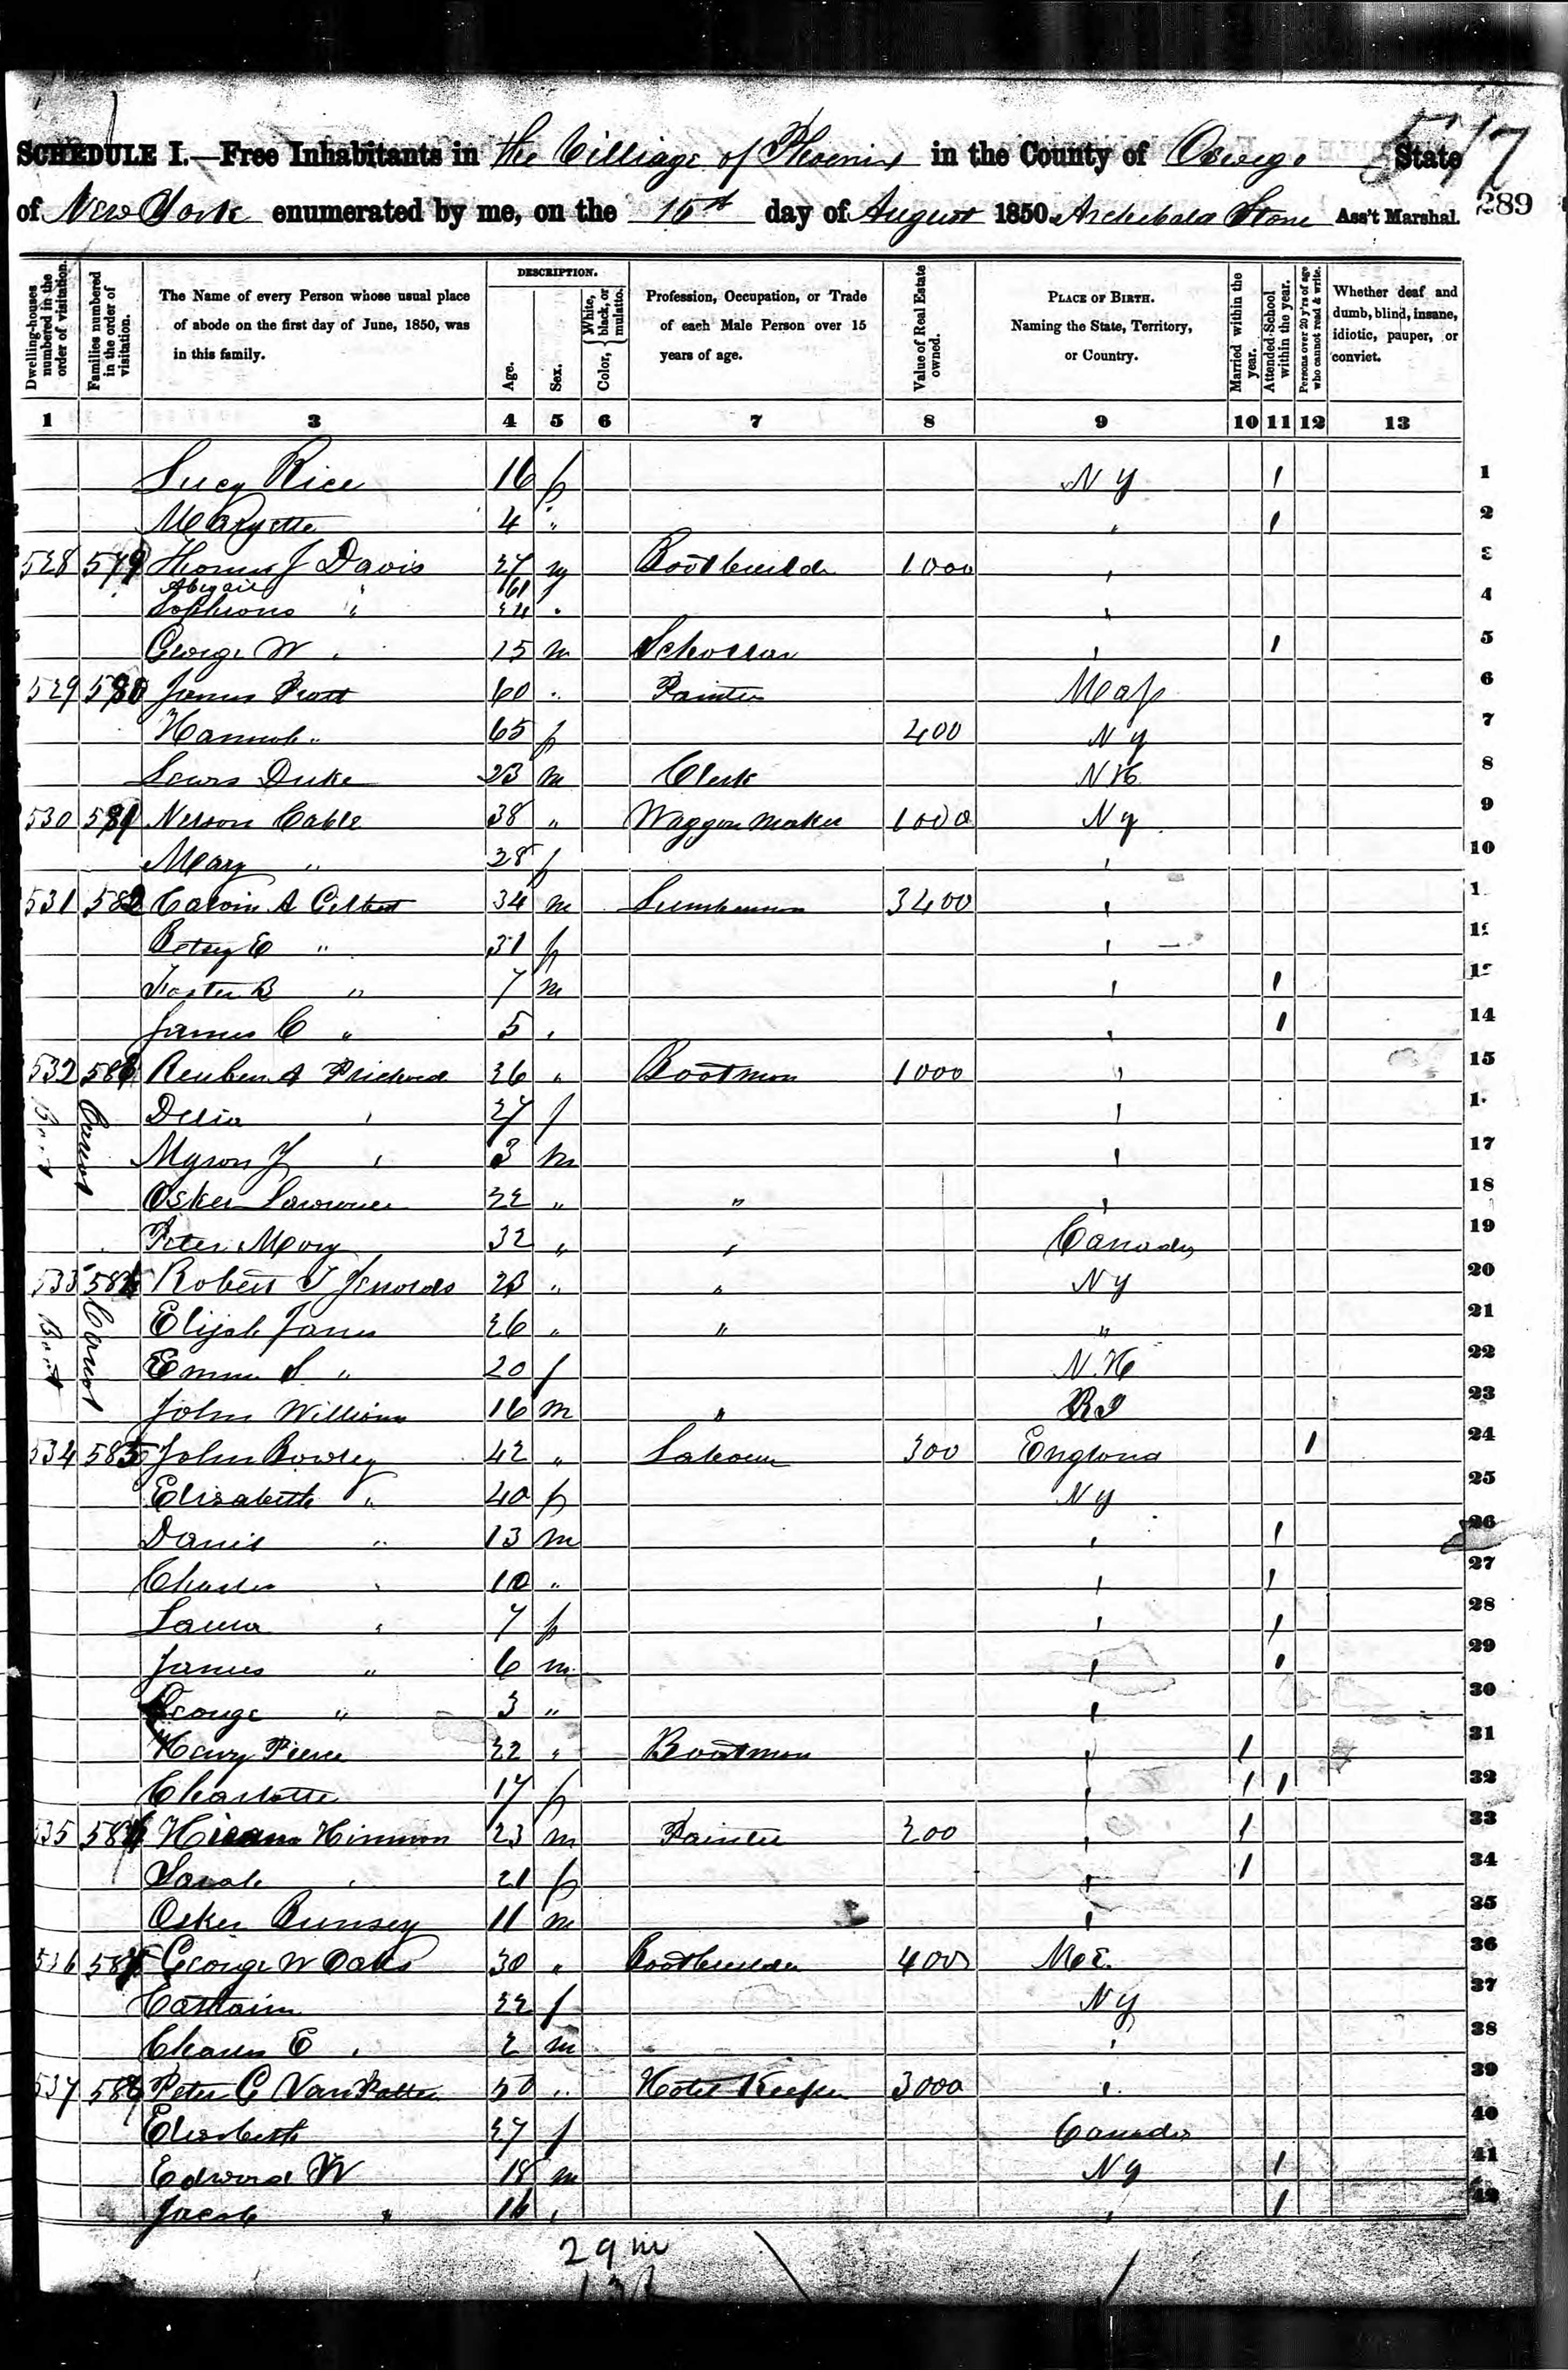 517
SCHEDULE I.—Free Inhabitants in the Villiage of Phoenix in the County of Oswego State
of New York enumerated by me, on the 15th day of August 1850. Archibald Stone Ass't Marshal. 289
Dwelling-houses numbered in the order of visitation.
Families numbered in the order of visitation.
The Name of every Person whose usual place of abode on the first day of June, 1850, was in this family.
DESCRIPTION.
Age.
Sex.
Color, { White, black, or mulatto.
Profession, Occupation, or Trade of each Male Person over 15 years of age.
Value of Real Estate owned.
PLACE OF BIRTH. Naming the State, Territory, or Country.
Married within the year.
Attended School within the year.
Persons over 20 y'rs of age who cannot read & write.
Whether deaf and dumb, blind, insane, idiotic, pauper, or convict.
1 2 3 4 5 6 7 8 9 10 11 12 13
Lucy Rice 16 f N Y 1 1
Maryette 4 " " 1 2
528 579 Thomas J Davis 27 m Boatbuilder 1000 " 3
Abigail " 61 f
Sophrona " 24 " " 4
George W " 15 m Schollar " 1 5
529 580 James Pratt 60 " Painter Mass 6
Hannah " 65 f 400 N Y 7
Lewis Duke 23 m Clerk N H 8
530 581 Nelson Cable 38 " Waggon Maker 1000 N Y 9
Mary " 28 f " 10
531 582 Calvin A Gilbert 34 m Lumberman 3400 "
Betsy E " 31 f "
Foster B " 7 m " 1
James C " 5 " " 1 14
532 Reuben A Prichard 26 " Boatman 1000 " 15
Delia " 27 f "
Myron J " 3 m " 17
Canal Boat
Osker Lawrence 22 " " " 18
Peter Mory 32 " " Canada 19
533 Robert J 23 " " N Y 20
Elijah Janes 26 " " " 21
Emma S " 20 f N. H 22
Canal Boat
John William 16 m " R I 23
534 585 John Rowley 42 " Labourer 300 England 1 24
Elisabeth " 40 f N Y 25
Daniel " 13 m " 1 26
Charles " 10 " " 1 27
Laura " 7 f " 1 28
James " 6 m " 1 29
George " 3 " " 30
Henry Pierce 22 " Boatman " 1 31
Charlotte 17 f " 1 1 32
535 Hiram Hinmon 23 m Painter 200 " 1 33
Sarah " 21 f " 1 34
Osker 11 m " 35
536 George W Oaks 30 " Boatbuilder 400 M E. 36
22 f N Y 37
Charles E " 2 m " 38
537 Peter C Van Patten 50 " Hotel Keeper 3000 " 39
Elisabeth 27 f Canada 40
Edward W 18 m N Y 1 41
Jacob " 16 " " 1 42
29 m
13 f